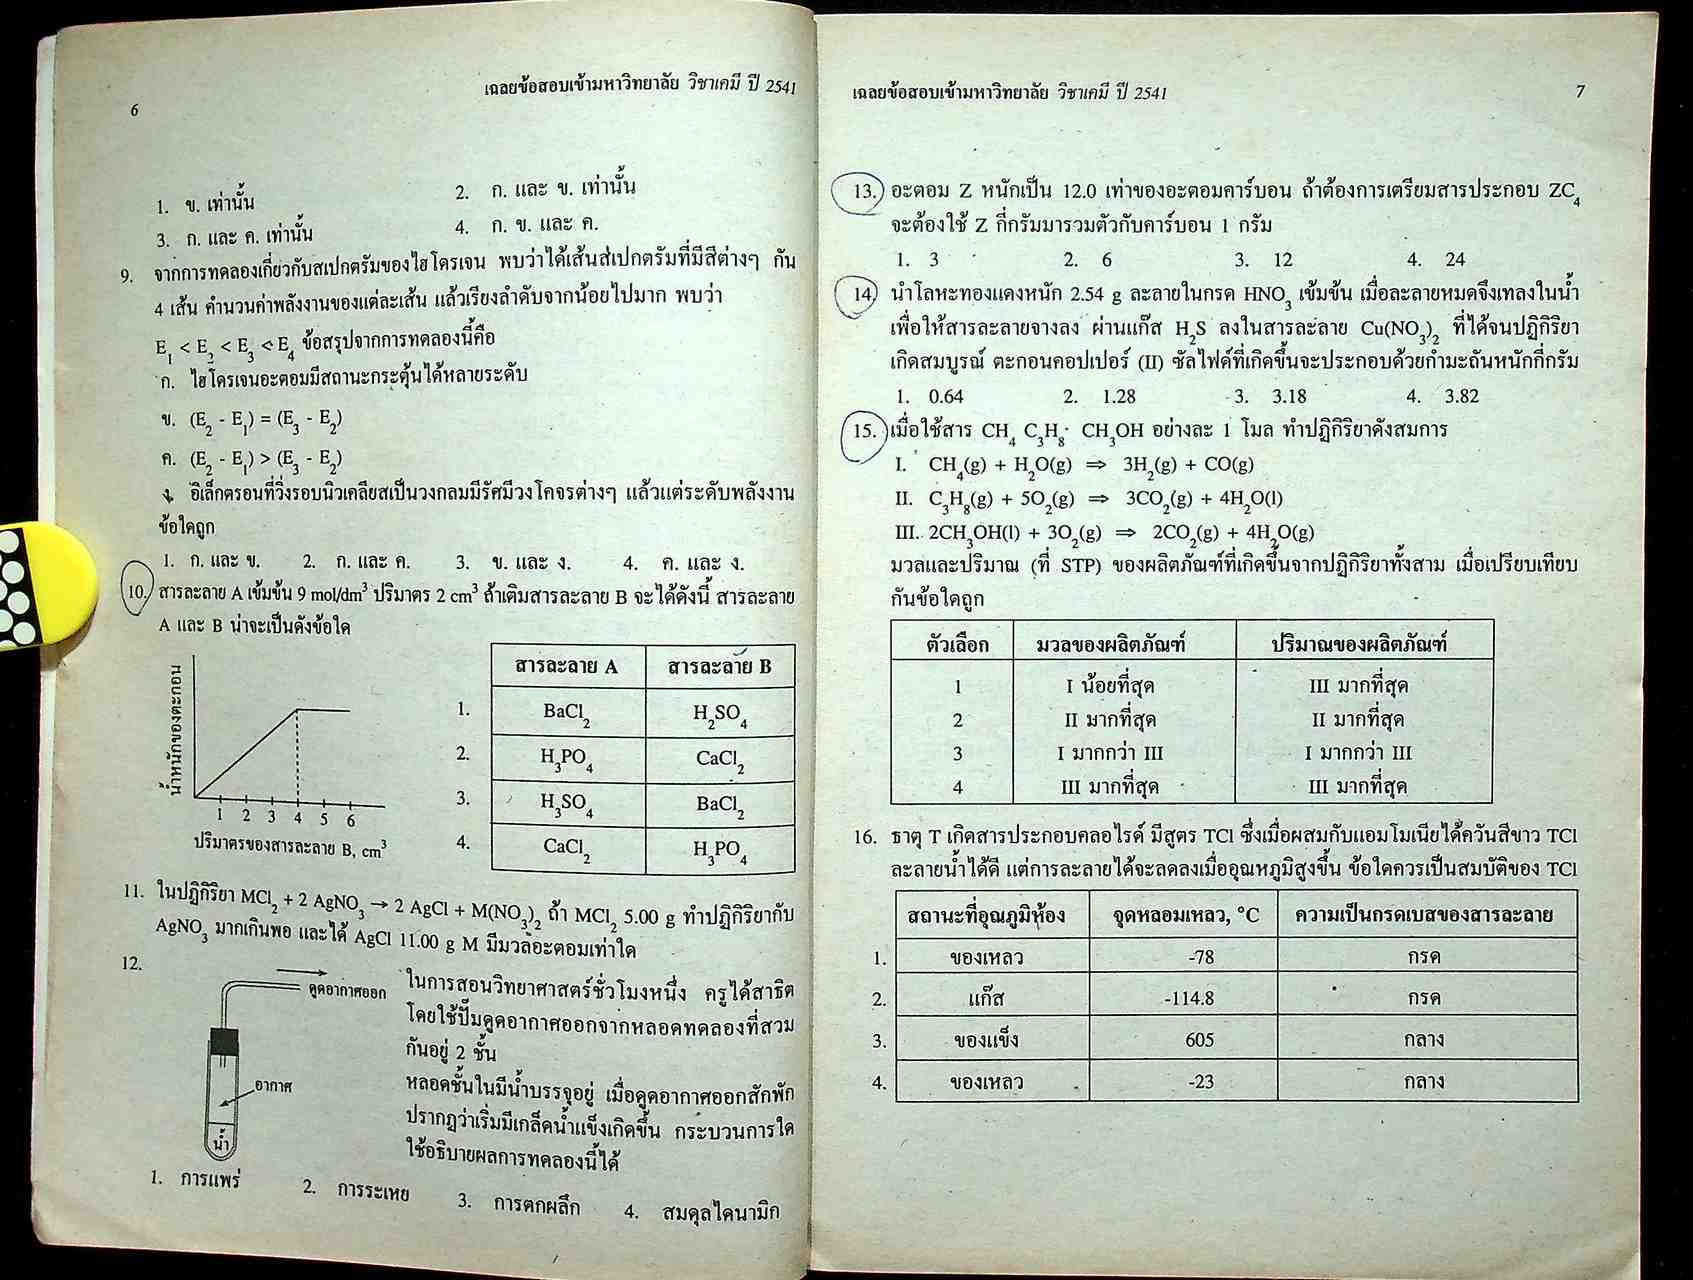 6
เฉลยข้อสอบเข้ามหาวิทยาลัย วิชาเคมี ปี 2541
1. ข. เท่านั้น 2. ก. และ ข. เท่านั้น
3. ก. และ ค. เท่านั้น 4. ก. ข. และ ค.
9. จากการทดลองเกี่ยวกับสเปกตรัมของไฮโดรเจน พบว่าได้เส้นสเปกตรัมที่มีสีต่างๆ กัน
4 เส้น คำนวนค่าพลังงานของแต่ละเส้น แล้วเรียงลำดับจากน้อยไปมาก พบว่า
E₁ < E₂ < E₃ < E₄ ข้อสรุปจากการทดลองนี้คือ
ก. ไฮโดรเจนอะตอมมีสถานะกระตุ้นได้หลายระดับ
ข. (E₂ - E₁) = (E₃ - E₂)
ค. (E₂ - E₁) > (E₃ - E₂)
ง. อิเล็กตรอนที่วิ่งรอบนิวเคลียสเป็นวงกลมมีรัศมีวงโคจรต่างๆ แล้วแต่ระดับพลังงาน
ข้อใดถูก
1. ก. และ ข. 2. ก. และ ค. 3. ข. และ ง. 4. ค. และ ง.
10. สารละลาย A เข้มข้น 9 mol/dm³ ปริมาตร 2 cm³ ถ้าเติมสารละลาย B จะได้ดังนี้ สารละลาย
A และ B น่าจะเป็นดังข้อใด
น้ำหนักของตะกอน
1 2 3 4 5 6
ปริมาตรของสารละลาย B, cm³
สารละลาย A สารละลาย B
1. BaCl₂ H₂SO₄
2. H₃PO₄ CaCl₂
3. H₃SO₄ BaCl₂
4. CaCl₂ H₃PO₄
11. ในปฏิกิริยา MCl₂ + 2 AgNO₃ → 2 AgCl + M(NO₃)₂ ถ้า MCl₂ 5.00 g ทำปฏิกิริยากับ
AgNO₃ มากเกินพอ และได้ AgCl 11.00 g M มีมวลอะตอมเท่าใด
12.
ดูดอากาศออก
อากาศ
น้ำ
ในการสอนวิทยาศาสตร์ชั่วโมงหนึ่ง ครูได้สาธิต
โดยใช้ปั๊มดูดอากาศออกจากหลอดทดลองที่สวม
กันอยู่ 2 ชั้น
หลอดชั้นในมีน้ำบรรจุอยู่ เมื่อดูดอากาศออกสักพัก
ปรากฏว่าเริ่มมีเกล็ดน้ำแข็งเกิดขึ้น กระบวนการใด
ใช้อธิบายผลการทดลองนี้ได้
1. การแพร่ 2. การระเหย 3. การตกผลึก 4. สมดุลไดนามิก
เฉลยข้อสอบเข้ามหาวิทยาลัย วิชาเคมี ปี 2541
7
13. อะตอม Z หนักเป็น 12.0 เท่าของอะตอมคาร์บอน ถ้าต้องการเตรียมสารประกอบ ZC₄
จะต้องใช้ Z กี่กรัมมารวมตัวกับคาร์บอน 1 กรัม
1. 3 2. 6 3. 12 4. 24
14. นำโลหะทองแดงหนัก 2.54 g ละลายในกรด HNO₃ เข้มข้น เมื่อละลายหมดจึงเทลงในน้ำ
เพื่อให้สารละลายจางลง ผ่านแก๊ส H₂S ลงในสารละลาย Cu(NO₃)₂ ที่ได้จนปฏิกิริยา
เกิดสมบูรณ์ ตะกอนคอปเปอร์ (II) ซัลไฟด์ที่เกิดขึ้นจะประกอบด้วยกำมะถันหนักกี่กรัม
1. 0.64 2. 1.28 3. 3.18 4. 3.82
15. เมื่อใช้สาร CH₄ C₃H₈ CH₃OH อย่างละ 1 โมล ทำปฏิกิริยาดังสมการ
I. CH₄(g) + H₂O(g) ⇒ 3H₂(g) + CO(g)
II. C₃H₈(g) + 5O₂(g) ⇒ 3CO₂(g) + 4H₂O(l)
III. 2CH₃OH(l) + 3O₂(g) ⇒ 2CO₂(g) + 4H₂O(g)
มวลและปริมาณ (ที่ STP) ของผลิตภัณฑ์ที่เกิดขึ้นจากปฏิกิริยาทั้งสาม เมื่อเปรียบเทียบ
กันข้อใดถูก
ตัวเลือก มวลของผลิตภัณฑ์ ปริมาณของผลิตภัณฑ์
1 I น้อยที่สุด III มากที่สุด
2 II มากที่สุด II มากที่สุด
3 I มากกว่า III I มากกว่า III
4 III มากที่สุด III มากที่สุด
16. ธาตุ T เกิดสารประกอบคลอไรด์ มีสูตร TCl ซึ่งเมื่อผสมกับแอมโมเนียได้ควันสีขาว TCl
ละลายน้ำได้ดี แต่การละลายได้จะลดลงเมื่ออุณหภูมิสูงขึ้น ข้อใดควรเป็นสมบัติของ TCl
สถานะที่อุณภูมิห้อง จุดหลอมเหลว, °C ความเป็นกรดเบสของสารละลาย
1. ของเหลว -78 กรด
2. แก๊ส -114.8 กรด
3. ของแข็ง 605 กลาง
4. ของเหลว -23 กลาง